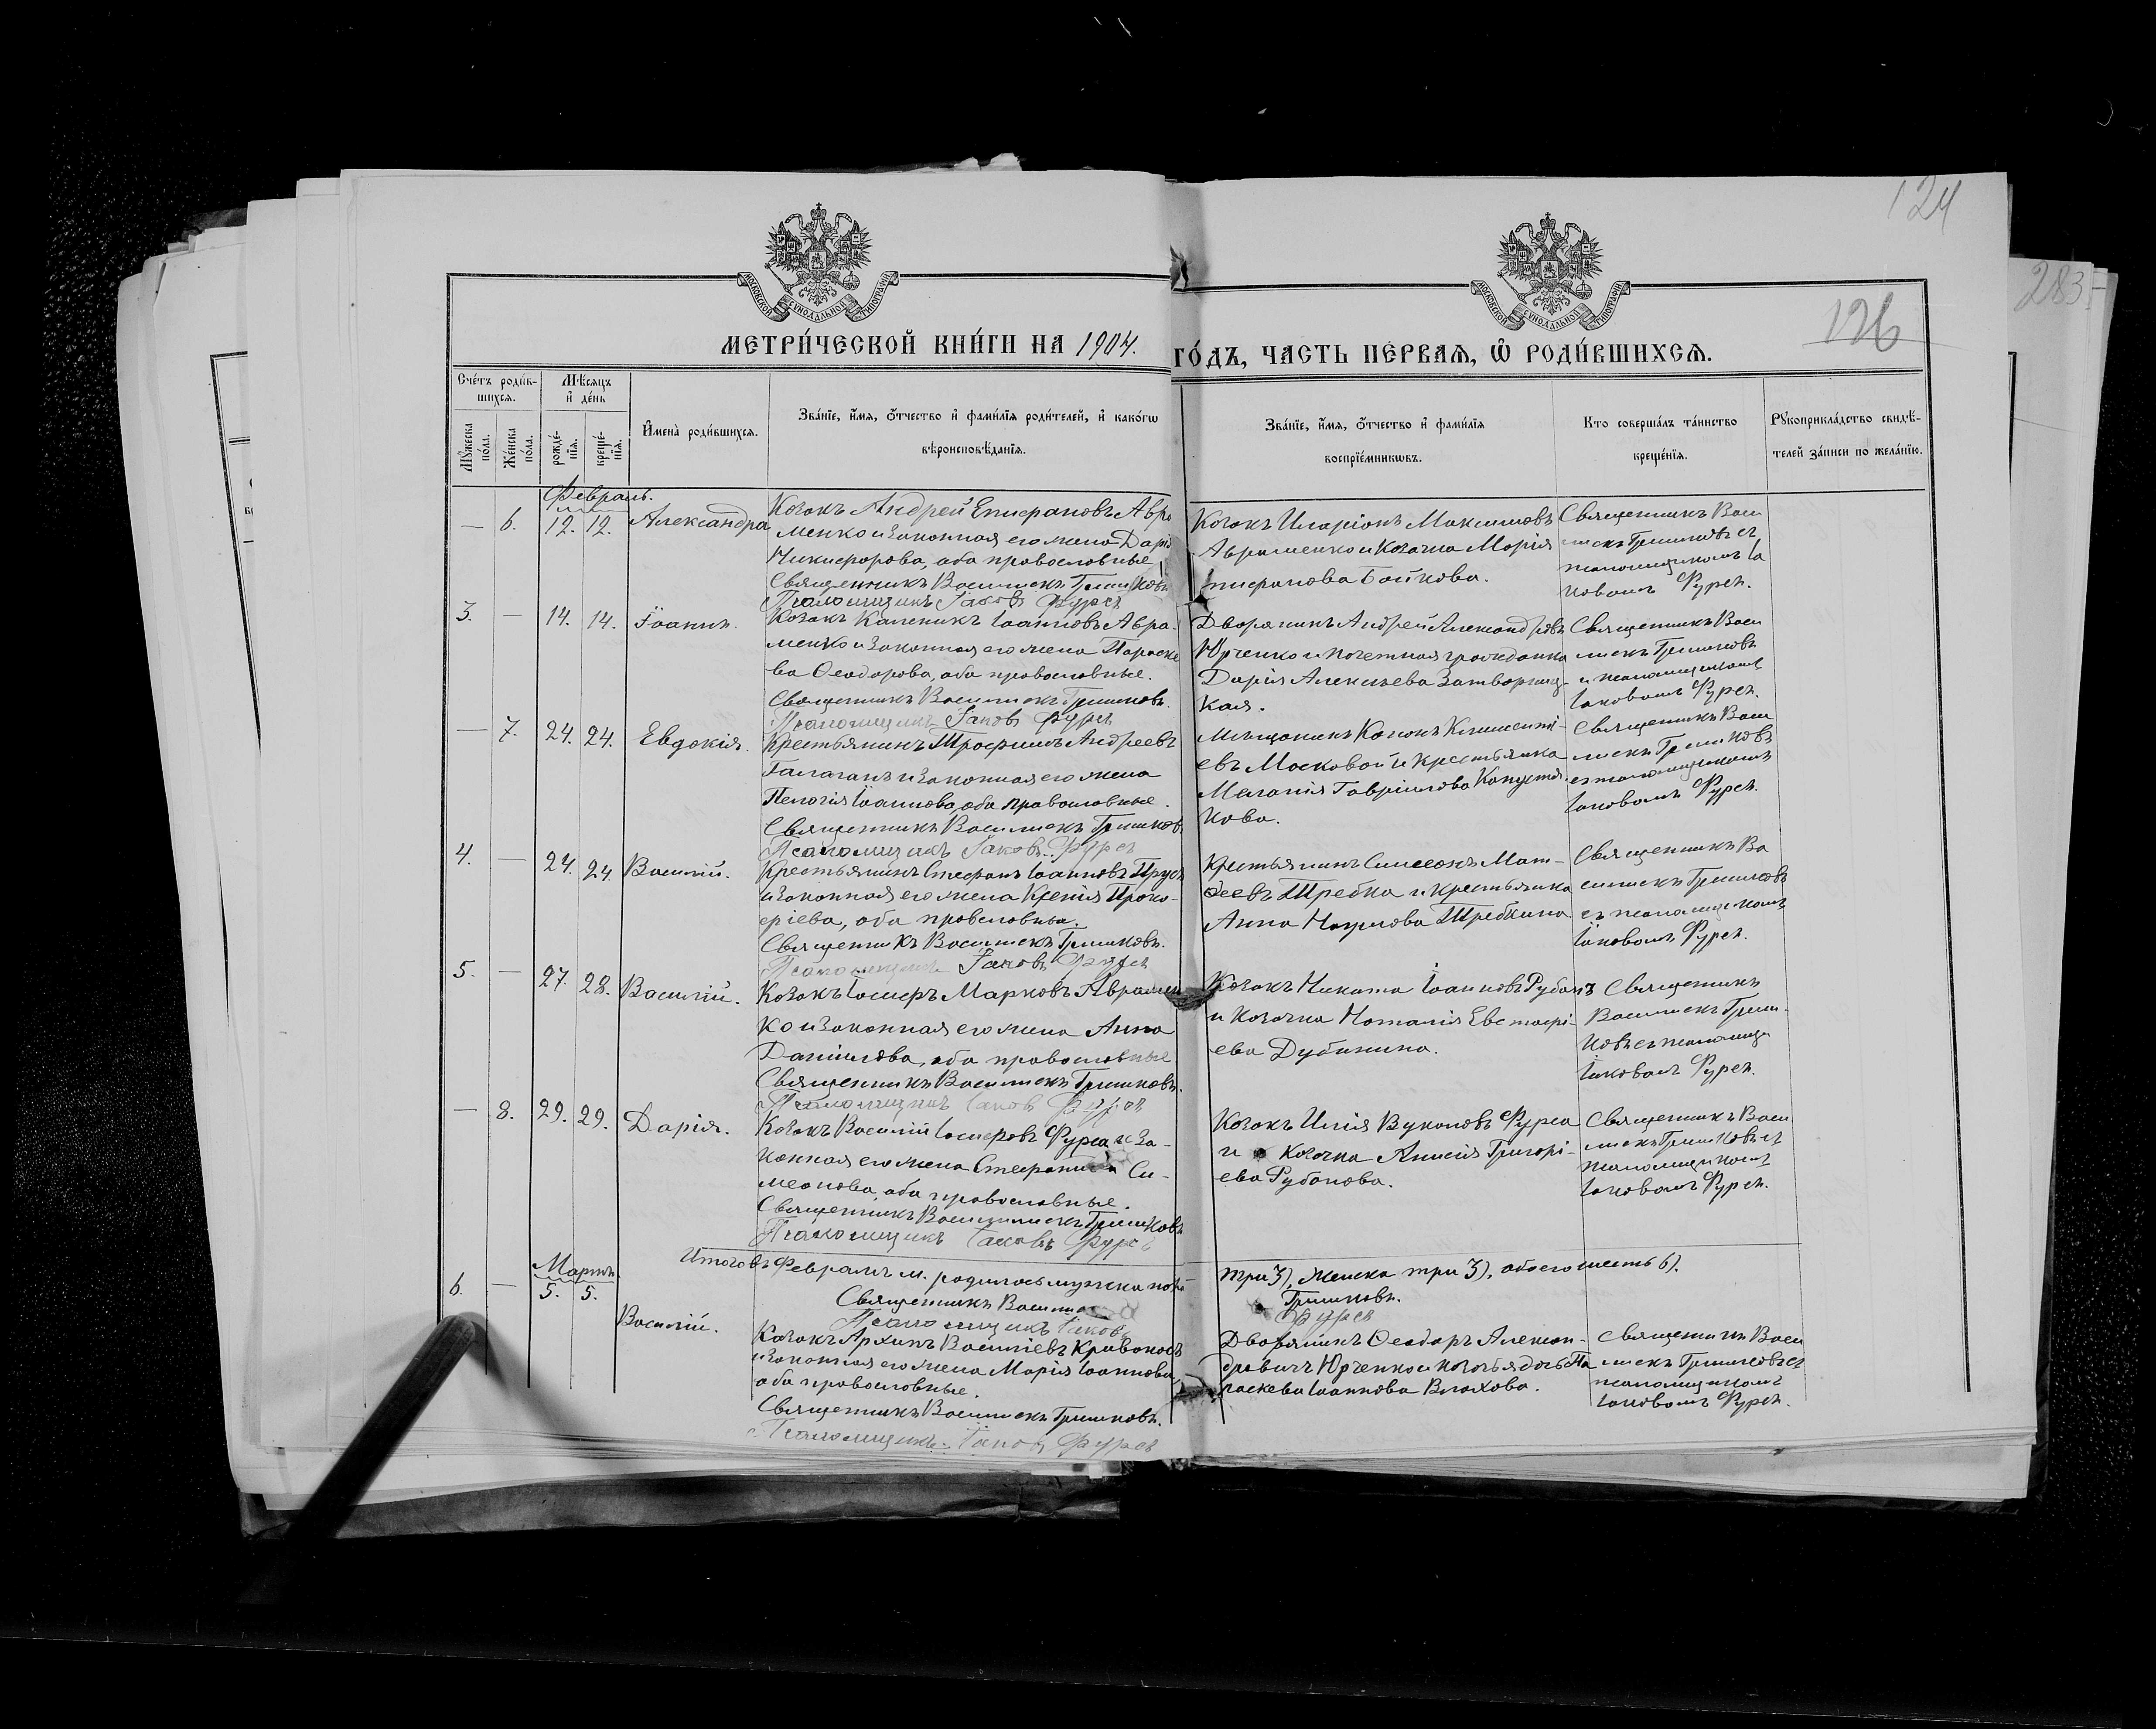 124
126
283
МОСКОВСКОЙ СѴНОДАЛЬНОЙ ТИПОГРАФИИ
МОСКОВСКОЙ СѴНОДАЛЬНОЙ ТИПОГРАФИИ
МЕТРИ́ЧЕСКОЙ КНИ́ГИ НА 1904.
ГО́ДЪ, ЧАСТЬ ПЕРВАѦ, Ѡ РОДИ́ВШИХСѦ.
Сче́тъ роди́в-
шихсѧ.
Мꙋ́жеска
по́ла.
Же́нска
по́ла.
Мѣ́сѧцъ
и҆ де́нь
рожде́-
нїѧ.
креще́-
нїѧ.
И҆мена̀ роди́вшихсѧ.
Зва́нїе, и҆́мѧ, ѻ҆́тчество и҆ фами́лїѧ роди́телей, и҆ како́гѡ
вѣроисповѣ́данїѧ.
Зва́нїе, и҆́мѧ, ѻ҆́тчество и҆ фами́лїѧ
воспрїе́мникѡвъ.
Кто соверша́лъ та́инство
креще́нїѧ.
Рꙋкоприкла́дство свидѣ́-
телей за́писи по жела́нїю.
Февраль.
— 6. 12. 12. Александра
Козакъ Андрей Епифановъ Авра
менко и законная его жена Дарія
Никифорова, оба православные
Священникъ Василискъ Гришковъ
Псаломщикъ Іаковъ Фурса
Козакъ Иларіонъ Максимовъ
Авраменко и Козачка Марія
пифанова Бойкова.
Священникъ Васи
лискъ Гришковъ съ
псаломщикомъ Іа
ковомъ Фурса.
3. — 14. 14. Іоаннъ.
Козакъ Калиникъ Іоанновъ Авра-
менко и законная его жена Параске
ва Ѳеодорова, оба православные.
Священникъ Василискъ Гришковъ.
Псаломщикъ Іаковъ Фурса
Дворянинъ Андрей Александровъ
Юрченко и почетная гражданка
Дарія Алексѣева
кая.
Священникъ Васи
лискъ Гришковъ
и псаломщикомъ
Іаковомъ Фурса.
— 7. 24. 24. Евдокія.
Крестьянинъ Трофимъ Андреевъ
Галаганъ и законная его жена
Пелагія Іоаннова, оба православные.
Священникъ Василискъ Гришковъ
Псаломщикъ Іаковъ Фурса
Мѣщанинъ
евъ Московой и крестьянка
Меланія Гавріилова Капустя
нова.
Священникъ Васи
лискъ Гришковъ
съ псаломщикомъ
Іаковомъ Фурса.
4. — 24. 24. Василій.
Крестьянинъ Стефанъ Іоанновъ
и законная его жена Ксенія Проко-
фіева, оба православные.
Священникъ Василискъ Гришковъ.
Псаломщикъ Іаковъ Фурса
Крестьянинъ Симеонъ Мат-
ѳеевъ Требка и крестьянка
Анна Наумова Требкина
Священникъ Ва
силискъ Гришковъ
съ псаломщикомъ
Іаковомъ Фурса.
5. — 27. 28. Василій.
Козакъ Іосифъ Марковъ Авраме
ко и законная его жена Анна
Даніилова, оба православные
Священникъ Василискъ Гришковъ.
Псаломщикъ Іаковъ Фурса
Козакъ Никита Іоанновъ Рубанъ
и Козачка Наталія Евстафі-
ева Дубинина.
Священникъ
Василискъ Гриш-
ковъ съ псаломщ
Іаковомъ Фурса.
— 8. 29. 29. Дарія.
Козакъ Василій Іосифовъ Фурса и за-
конная его жена Стефанида Си-
меонова, оба православные.
Священникъ Василискъ Гришковъ
Псаломщикъ Іаковъ Фурса
Козакъ Илія Вуколовъ Фурса
и Козачка Анисія Григорі-
ева Рубанова.
Священникъ Васи
лискъ Гришковъ съ
псаломщикомъ
Іаковомъ Фурса.
Итого въ Февралѣ м. родилось мужска пола
три 3), женска три 3), обоего шесть 6).
Священникъ Василис
Гришковъ.
Псаломщикъ Іаковъ
Фурса
Мартъ.
6. — 5. 5. Василій.
Козакъ Архипъ Василіевъ Кривоносъ
и законная его жена Марія Іоаннова,
оба православные.
Священникъ Василискъ Гришковъ.
Псаломщикъ Іаковъ Фурса
Дворянинъ Ѳеодоръ Алексан-
дровичъ Юрченко и козачья дочь Па
раскева Іоаннова Влахова.
Священникъ Васи
лискъ Гришковъ съ
псаломщикомъ
Іаковомъ Фурса.